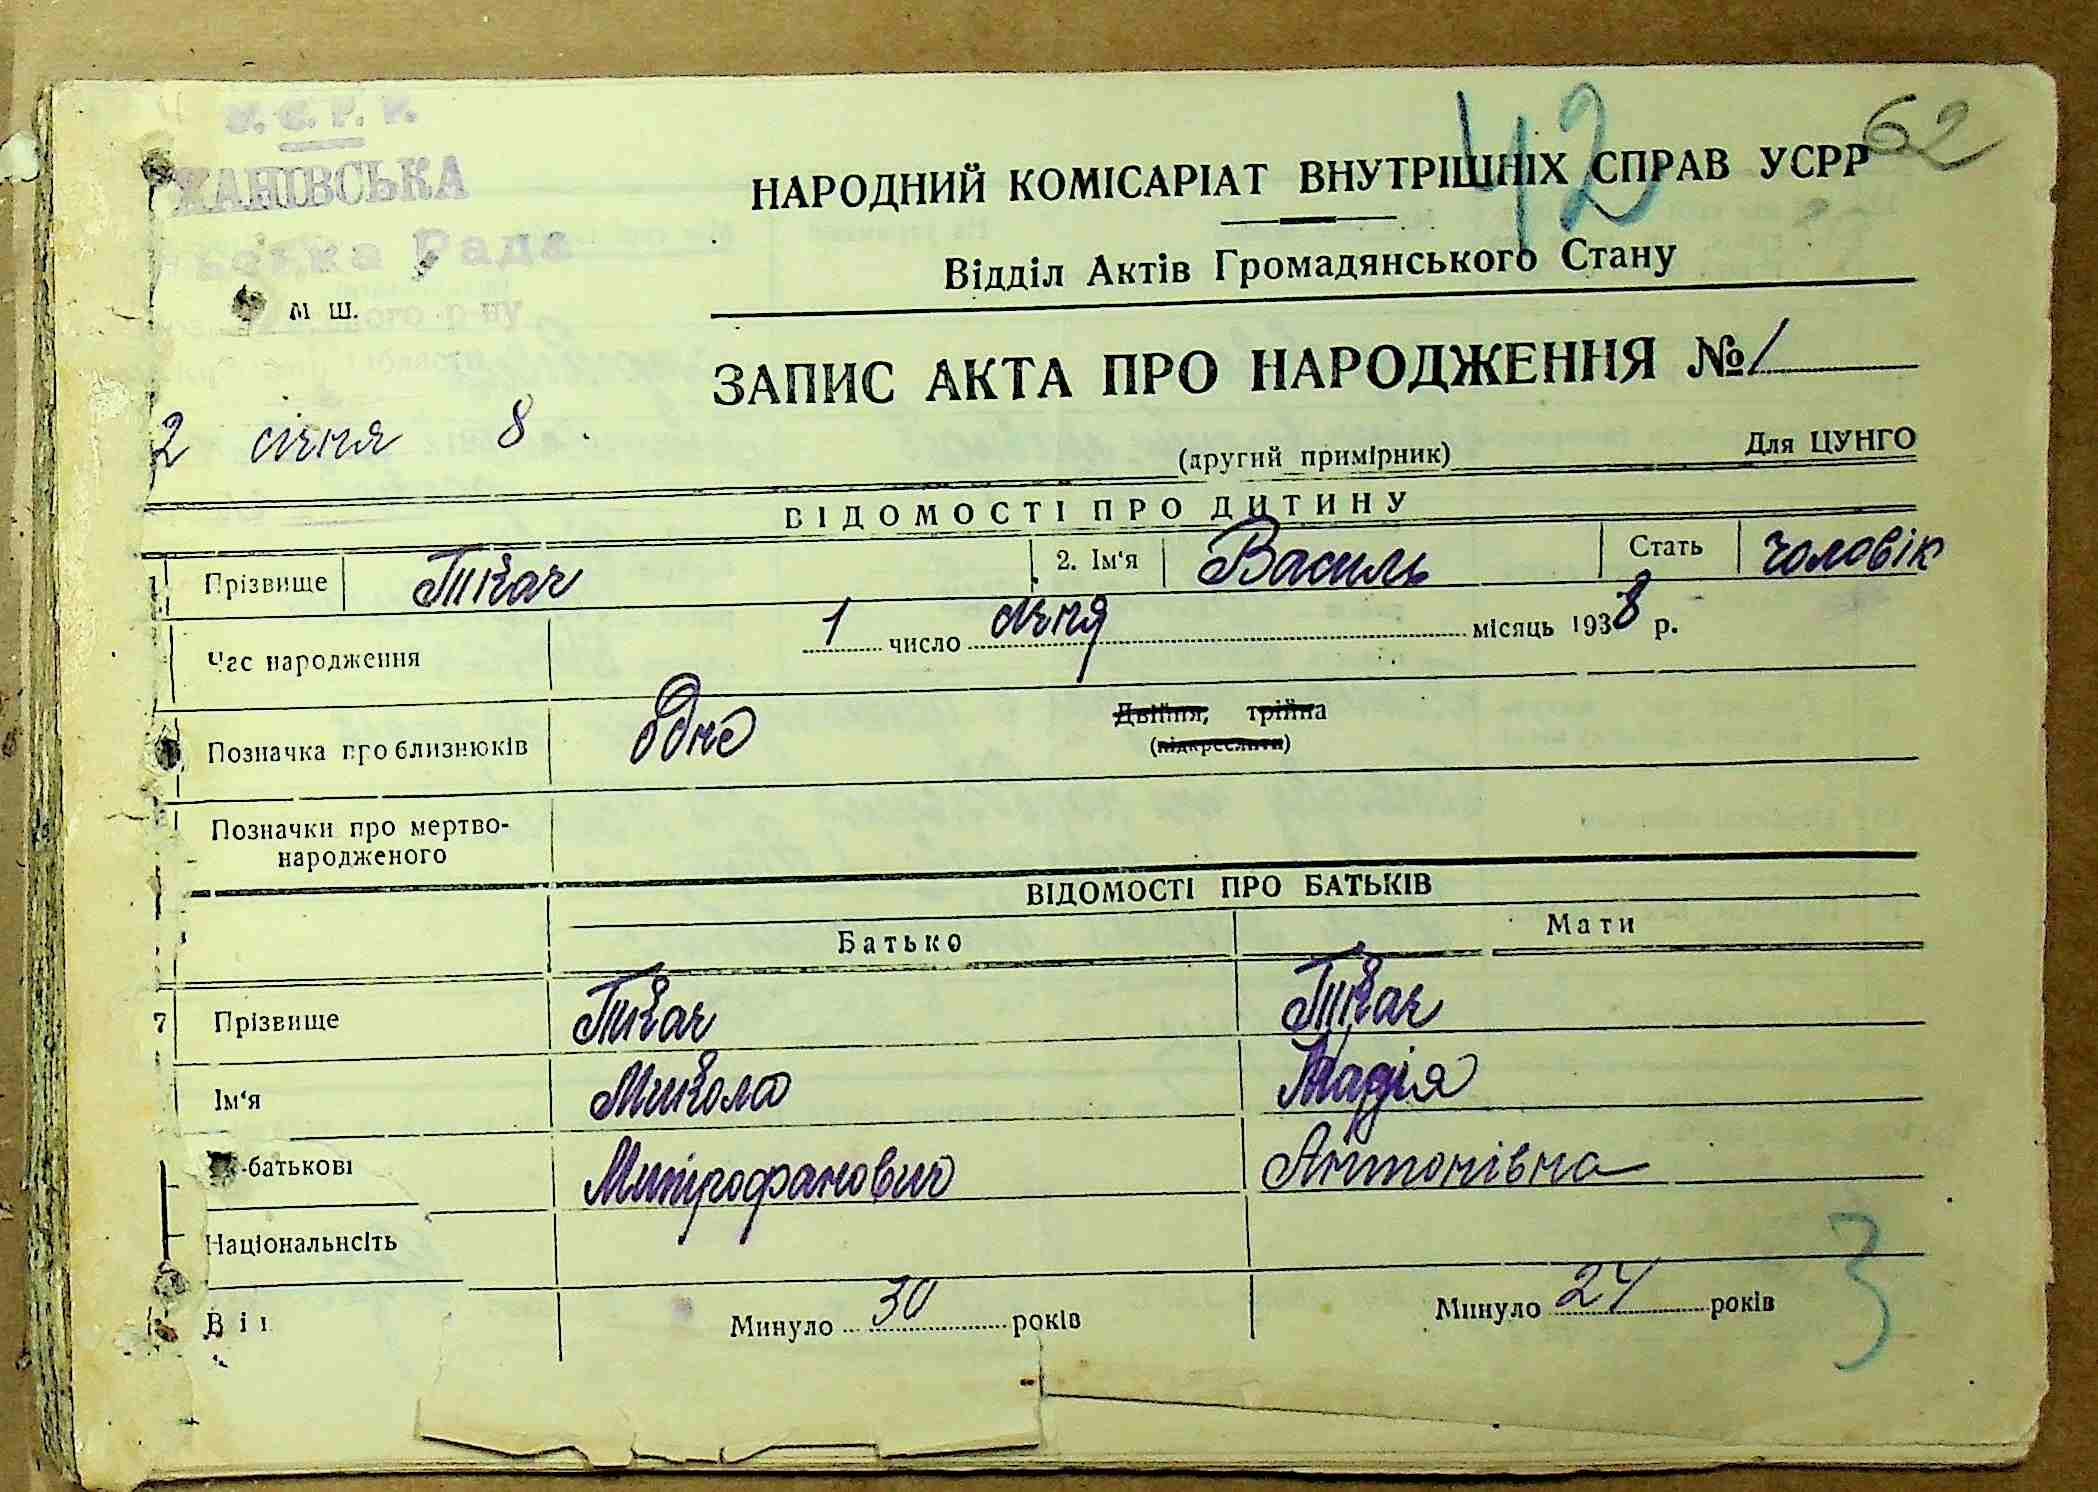 У. С. Р. Р.
ХАНІВСЬКА
Рада
м ш.
42
62
НАРОДНИЙ КОМІСАРІАТ ВНУТРІШНІХ СПРАВ УСРР
Відділ Актів Громадянського Стану
ЗАПИС АКТА ПРО НАРОДЖЕННЯ № 1
2 січня 8
(другий примірник) Для ЦУНГО
ВІДОМОСТІ ПРО ДИТИНУ
1 Прізвище Ткач 2. Ім'я Василь Стать чоловік
Час народження 1 число січня місяць 1938 р.
Позначка про близнюків одно Двійня, трійна
(підкреслити)
Позначки про мертво-
народженого
ВІДОМОСТІ ПРО БАТЬКІВ
Батько Мати
7 Прізвище Ткач Ткач
Ім'я Микола Марія
-батькові Митрофанович Антонівна
Національнсіть
3
Минуло 30 років Минуло 24 років